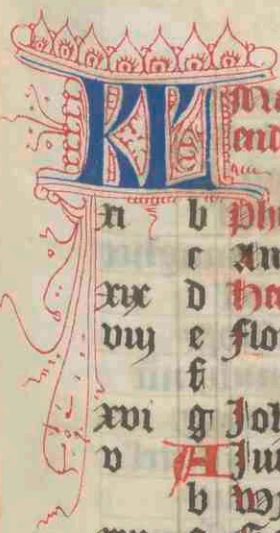 KL Ma
end
xi b Ph
c An
xix D he
viij e flo
f
xvi g Joh
v A Ju
b